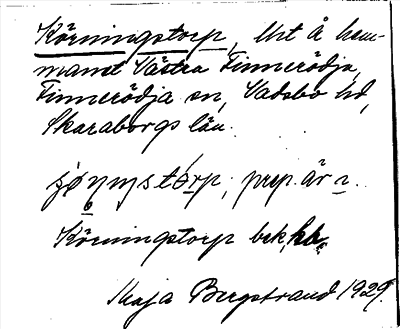 Körningstorp, lht å hem-
manet Västra Finnerödja,
Finnerödja sn, Vadsbo hd,
Skaraborgs län.
prep. är
Körningstorp bek. hb.
Maja Bergstrand 1929.